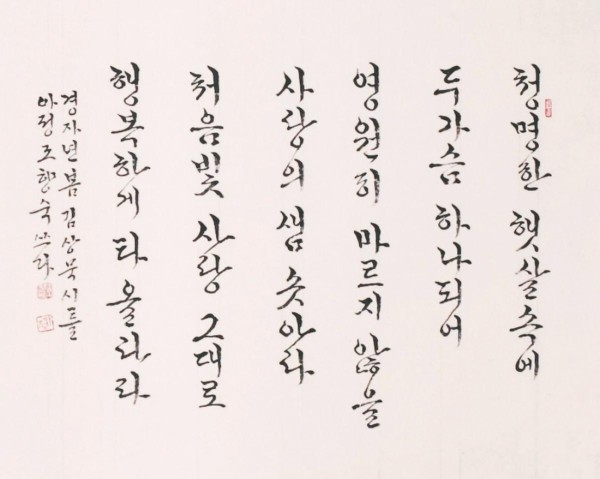 청명한 햇살 속에
두가슴 하나되어
영원히 마르지 않을
사랑의 샘 솟아라
처음빛 사랑 그대로
행복하게 타 올라라
경자년 봄 김상묵 시를
아정 조행숙 쓰다